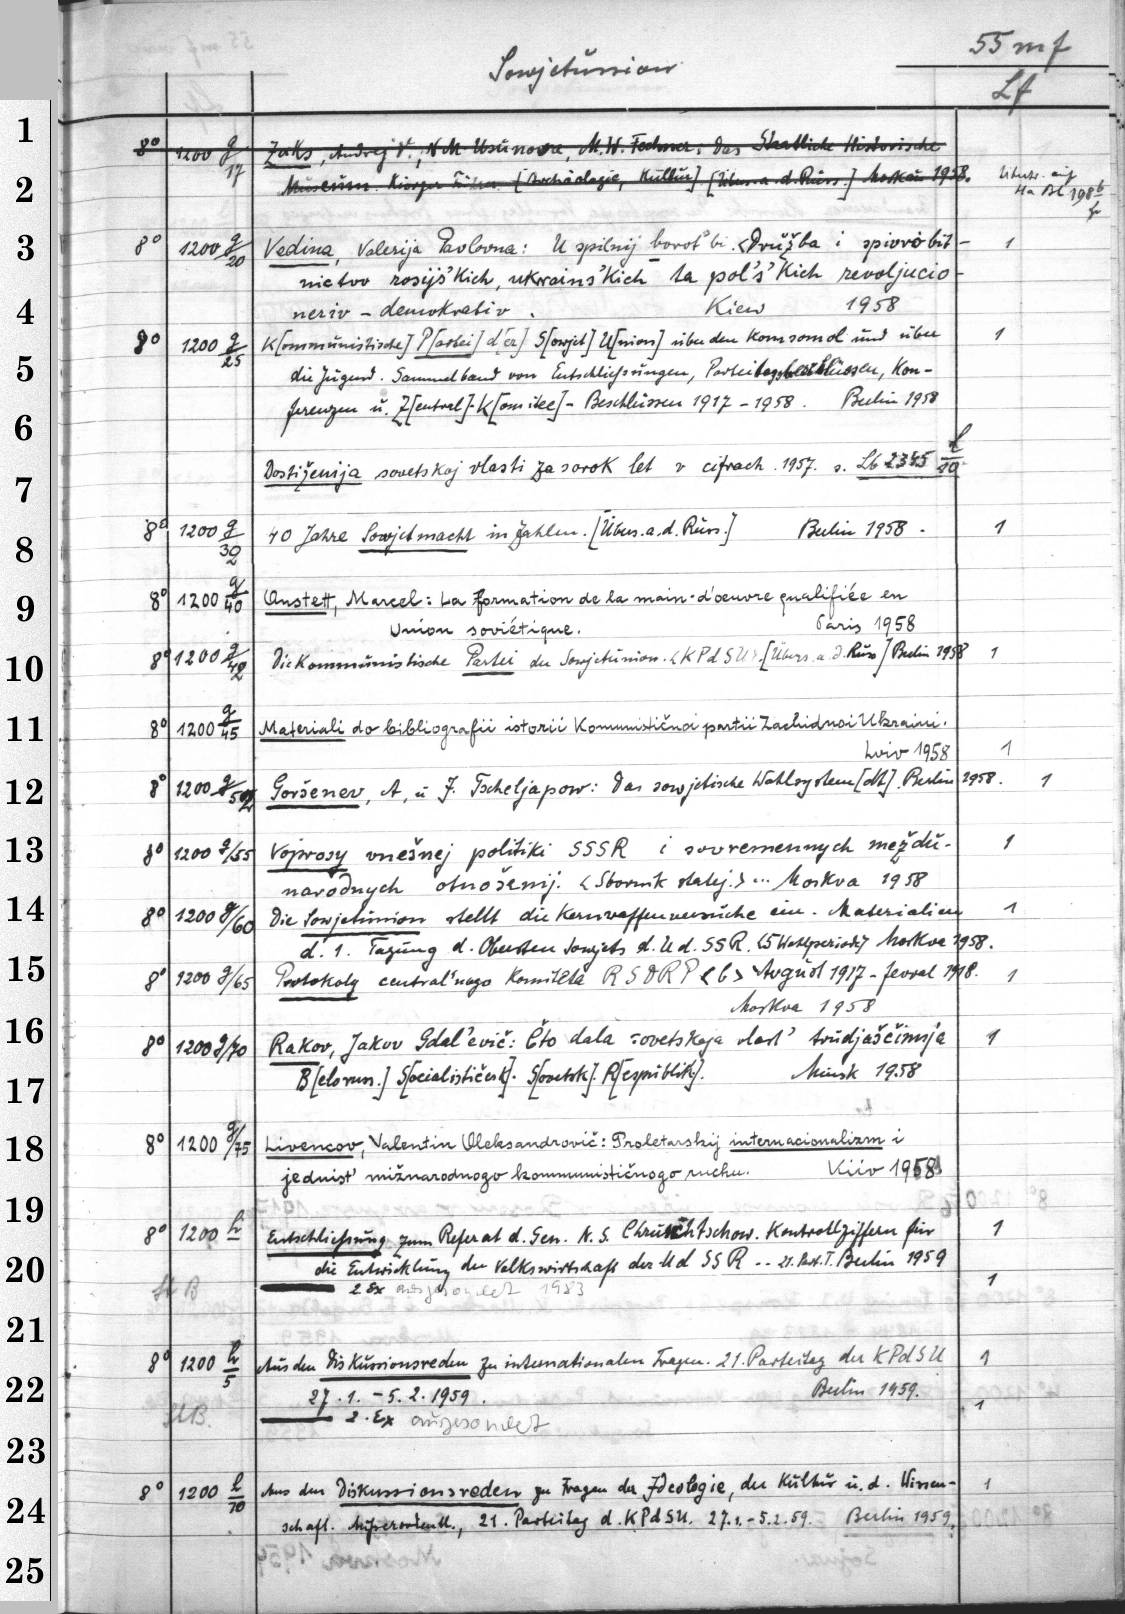 55 mf
Sowjetunion
Lf
1
8° 1200 g/17 Zaks, Andrej V., N.M. Usunova, M.W. Fechner: Das Staatliche Historische
2
Museum. [Archäologie, Kultur] [Übers. a. d. Russ.] Moskau 1958.
Ha Bl 198
3
8° 1200 g/20 Vedina, Valerija Pavlovna: U spilnij borot'bi. <Družba i spivrobit- 1
nictvo rosijs'kich, ukrains'kich ta pol's'kich revoljucio-
4
neriv-demokrativ. Kiew 1958
8° 1200 g/25 K[ommunistische] P[artei] d[er] S[owjet] U[nion] über den Komsomol und über 1
5
die Jugend. Sammelband von Entschliessungen, Parteitagsbeschlüssen, Kon-
ferenzen u. Z[entral]-K[omitee]-Beschlüssen 1917-1958. Berlin 1958
6
Dostiženija sovetskoj vlasti za sorok let v cifrach. 1957. s. Lb 2345 h/10
7
8° 1200 g/30/2 40 Jahre Sowjetmacht in Zahlen. [Übers. a. d. Russ.] Berlin 1958. 1
8
8° 1200 g/40 Anstett, Marcel: La formation de la main-d'oeuvre qualifiée en
9
Union soviétique. Paris 1958
8° 1200 g/42 Die Kommunistische Partei der Sowjetunion. <KPdSU>. [Übers. a. d. Russ] Berlin 1958 1
10
8° 1200 g/45 Materiali do bibliografii istorii Komunističnoi partii Zachidnoi Ukraini.
11
Lviv 1958 1
8° 1200 g/50 Goršenev, A., u J. Tscheljapow: Das sowjetische Wahlsystem [dt.]. Berlin 1958. 1
12
8° 1200 g/55 Voprosy vnešnej politiki SSSR i sovremennych meždu- 1
13
narodnych otnošenij. <Sbornik statej.> ... Moskva 1958
8° 1200 g/60 Die Sowjetunion stellt die Kernwaffenversuche ein. Materialien 1
14
d. 1. Tagung d. Obersten Sowjets d. UdSSR. <5 Wahlperiode> Moskva 1958.
8° 1200 g/65 Protokoly central'nogo Komiteta RSDRP <b> Avgust 1917 - fevral 1918. 1
15
Moskva 1958
16
8° 1200 g/70 Rakov, Jakov Gdal'evič: Čto dala sovetskaja vlast' trudjaščimsja 1
B[eloruss.] S[ocialističesk]. S[ovetsk]. R[espublik]. Minsk 1958
17
8° 1200 g/75 Livencov, Valentin Oleksandrovič: Proletarskij internacionalizm i
18
jednist' mižnarodnogo kommunističnogo ruchu. Kiiv 1958
19
8° 1200 h Entschliessung zum Referat d. Gen. N. S. Chruschtschow. Kontrollziffern für 1
die Entwicklung der Volkswirtschaft der UdSSR .. 21. Part.T. Berlin 1959
20
St B 2. Ex ausgesondert 1983 1
21
8° 1200 h/5 Aus den Diskussionsreden zu internationalen Fragen. 21. Parteitag der KPdSU 1
22
27.1.-5.2.1959. Berlin 1959.
St B. 2. Ex ausgesondert 1
23
8° 1200 h/10 Aus den Diskussionsreden zu Fragen der Ideologie, der Kultur u. d. Wissen- 1
24
schaft. Ausserordentl., 21. Parteitag d. KPdSU. 27.1.-5.2.59. Berlin 1959.
25